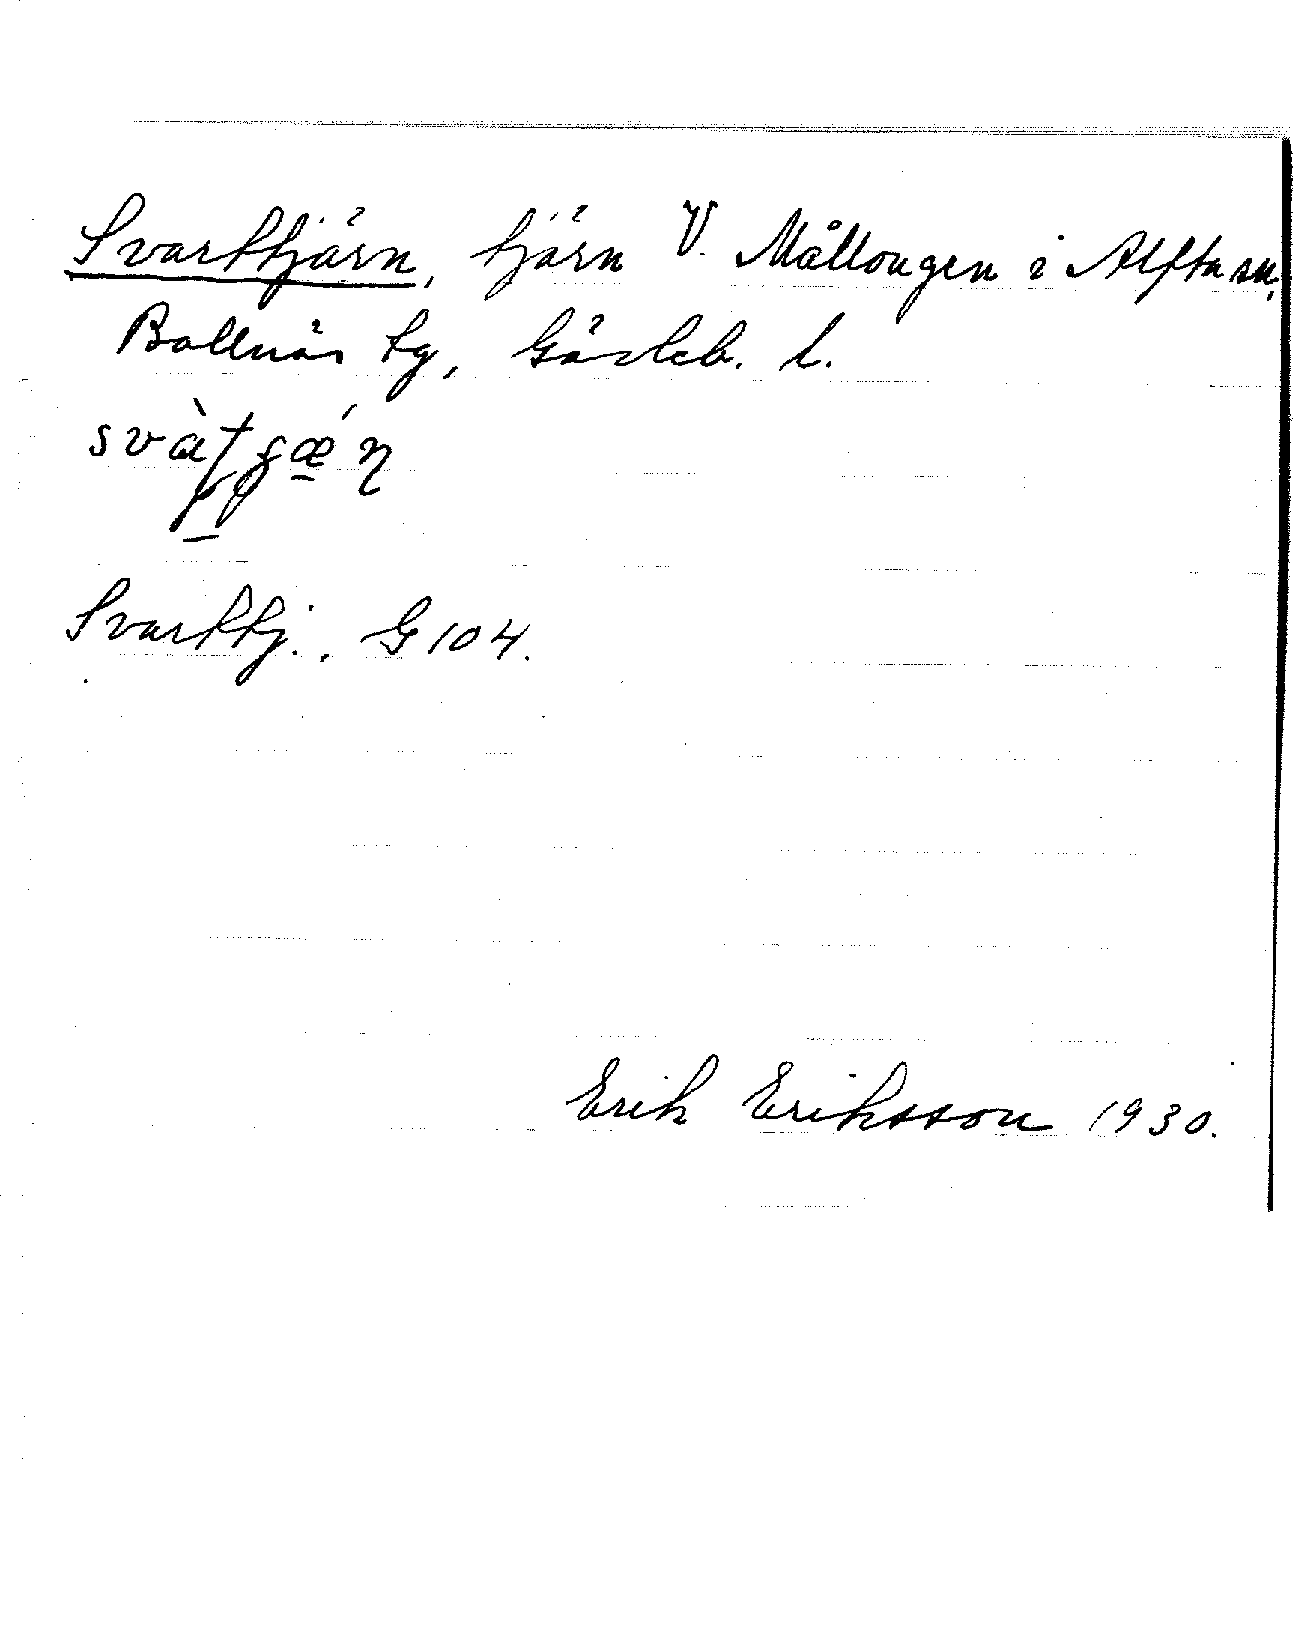 Svarttjärn, tjärn V. Mållongen i Alfta sn,
Bollnäs tg, Gävleb. l.
Svarttj., G 104.
Erik Eriksson 1930.